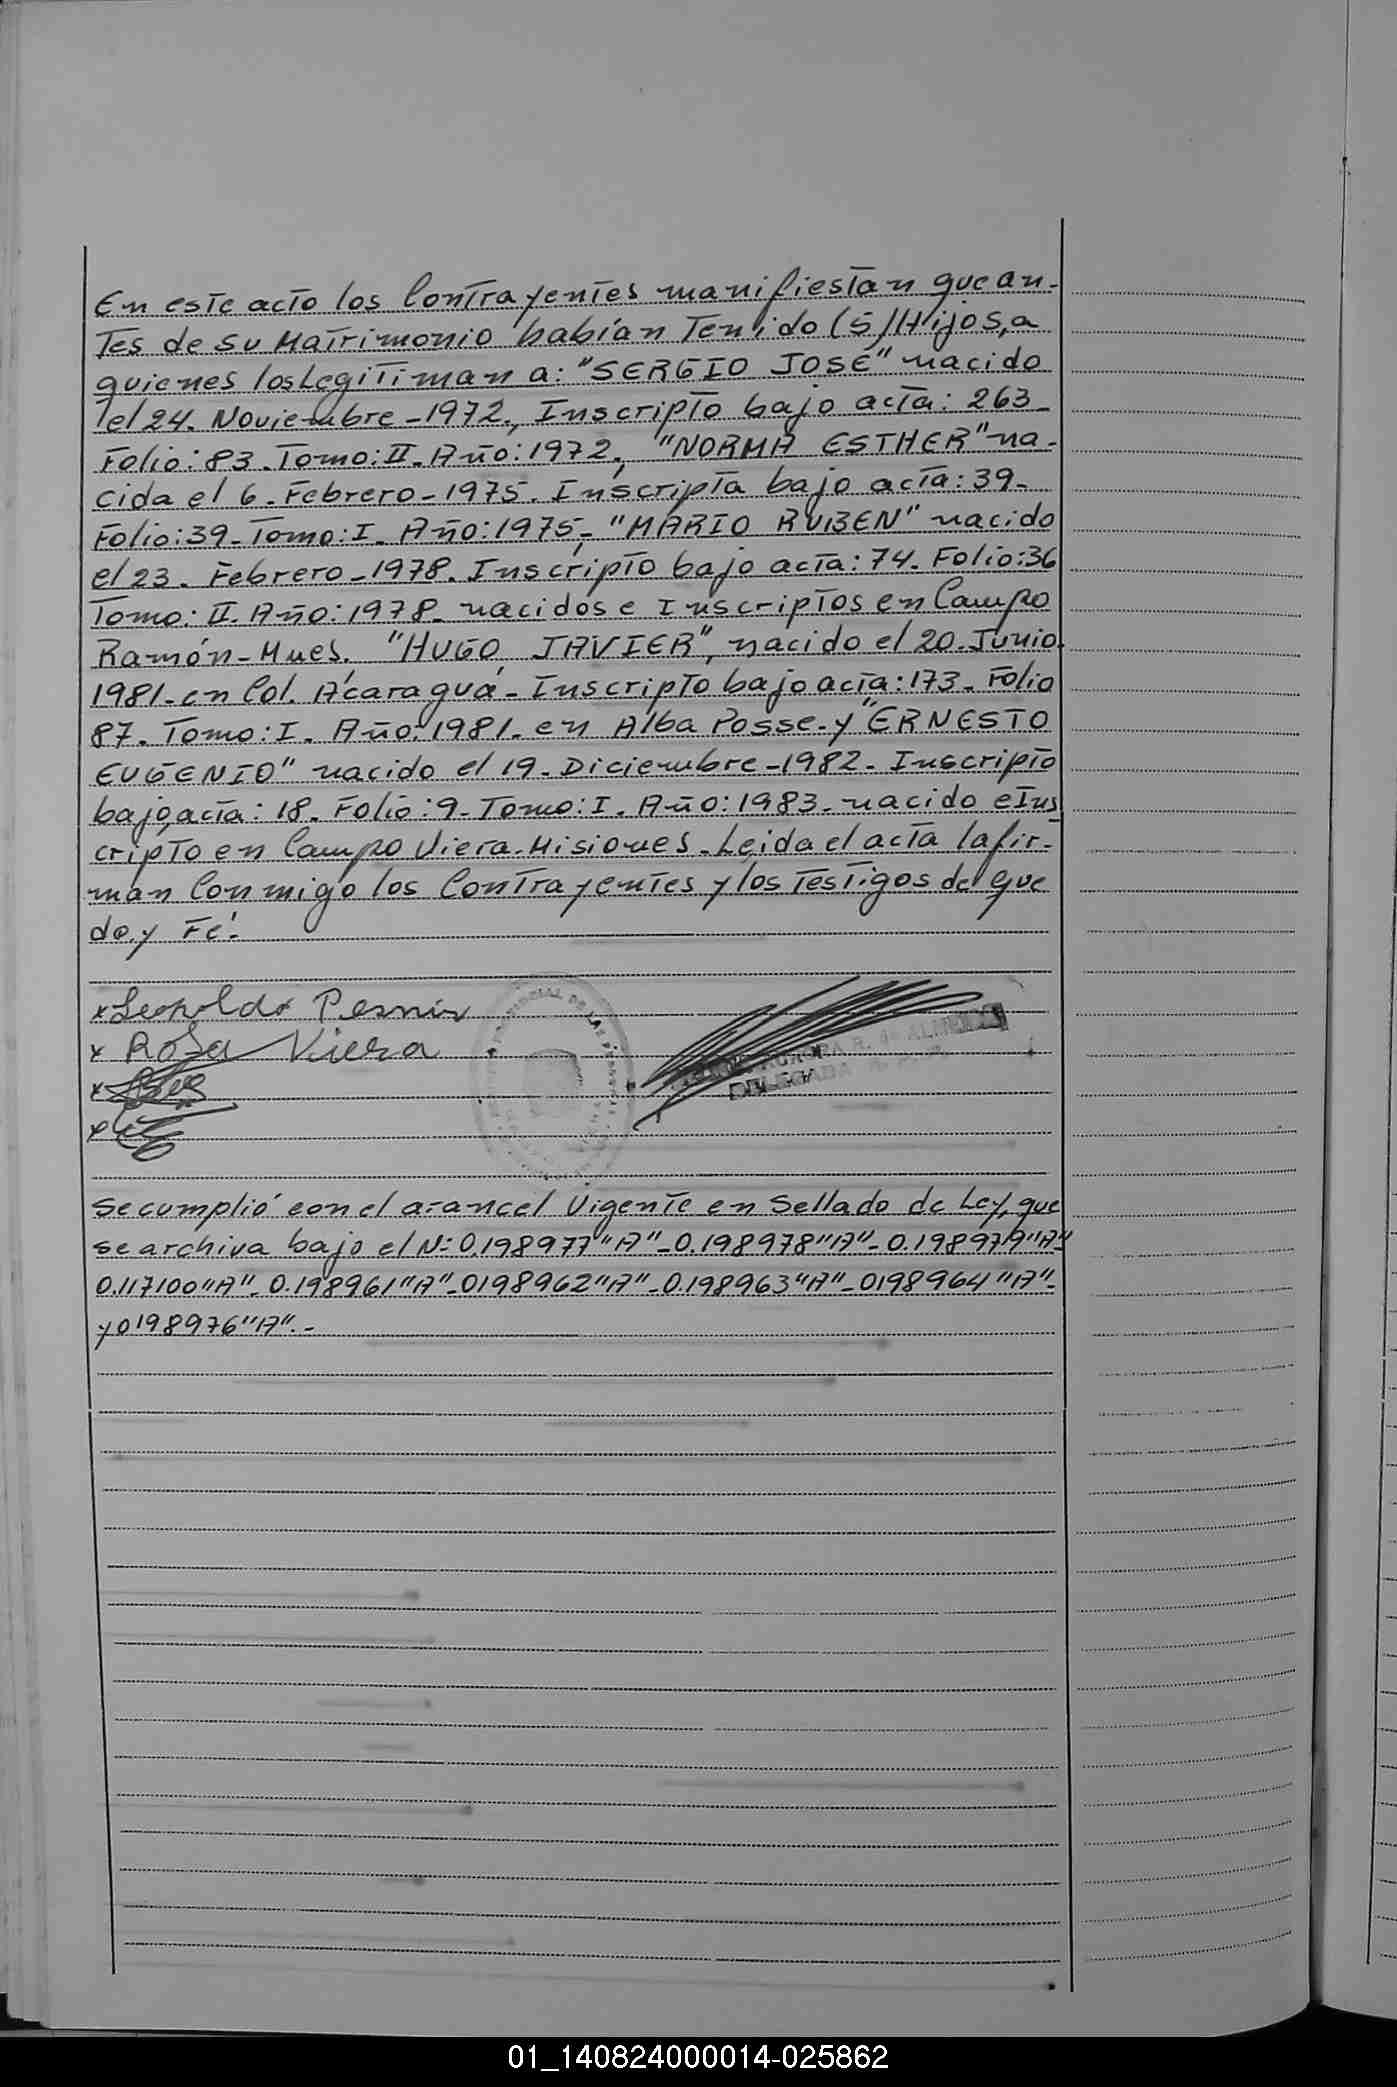 En este acto los Contrayentes manifiestan que an-
tes de su Matrimonio habían Tenido (5) Hijos, a
quienes los Legitiman a: "SERGIO JOSÉ" nacido
el 24. Noviembre-1972., Inscripto bajo acta: 263-
Folio: 83. Tomo: II. Año: 1972, "NORMA ESTHER" na-
cida el 6. Febrero-1975. Inscripta bajo acta: 39-
Folio: 39- Tomo: I. Año: 1975,- "MARIO RUBEN" nacido
el 23. Febrero-1978. Inscripto bajo acta: 74. Folio: 36
Tomo: II. Año: 1978- nacidos e Inscriptos en Campo
Ramón-Mnes. "HUGO JAVIER", nacido el 20-Junio
1981-en Col. Acaraguá- Inscripto bajo acta: 173- Folio
87. Tomo: I. Año: 1981. en Alba Posse-y "ERNESTO
EUGENIO" nacido el 19-Diciembre-1982- Inscripto
bajo, acta: 18. Folio: 9- Tomo: I. Año: 1983- nacido e Ins
cripto en Campo Viera-Misiones-Leida el acta la fir-
man Conmigo los Contrayentes y los Testigos de que
doy Fé.
x Leopoldo
x Rosa Viera
x
x
AURORA R. de
DELEGADA
Se cumplió con el arancel Vigente en Sellado de Ley, que
se archiva bajo el N: 0.198977 "A"-0.198978 "A"-0.198979 "A"
0.117100 "A"-0.198961 "A"-0198962 "A"-0.198963 "A"-0198964 "A"-
y 0198976 "A".-
01_140824000014-025862